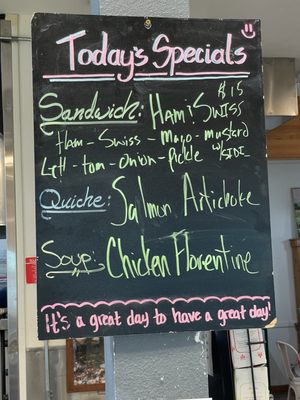 Today's Specials
$15
Sandwich: Ham & Swiss
Ham - Swiss - Mayo - mustard
Lett - tom - Onion - Pickle W/SIDE
Quiche: Salmon Artichoke
Soup: Chicken Florentine
It's a great day to have a great day!